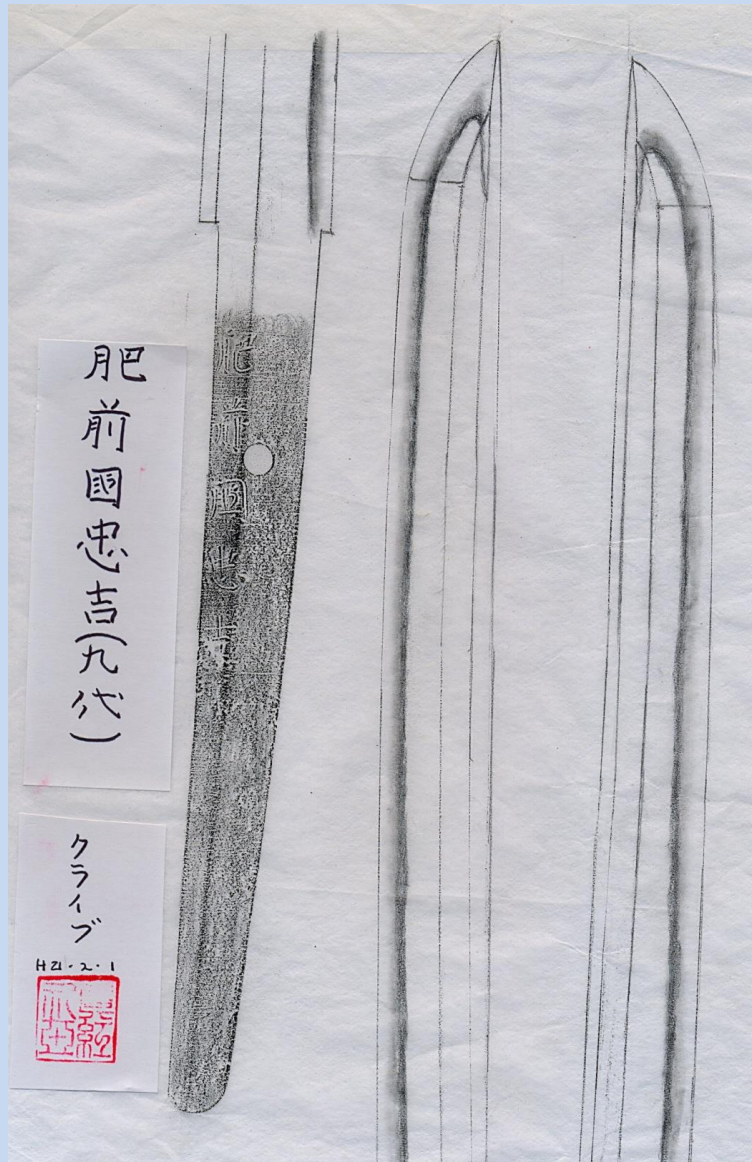 肥前國忠吉
肥前國忠吉(九代)
クライブ
H21・2・1